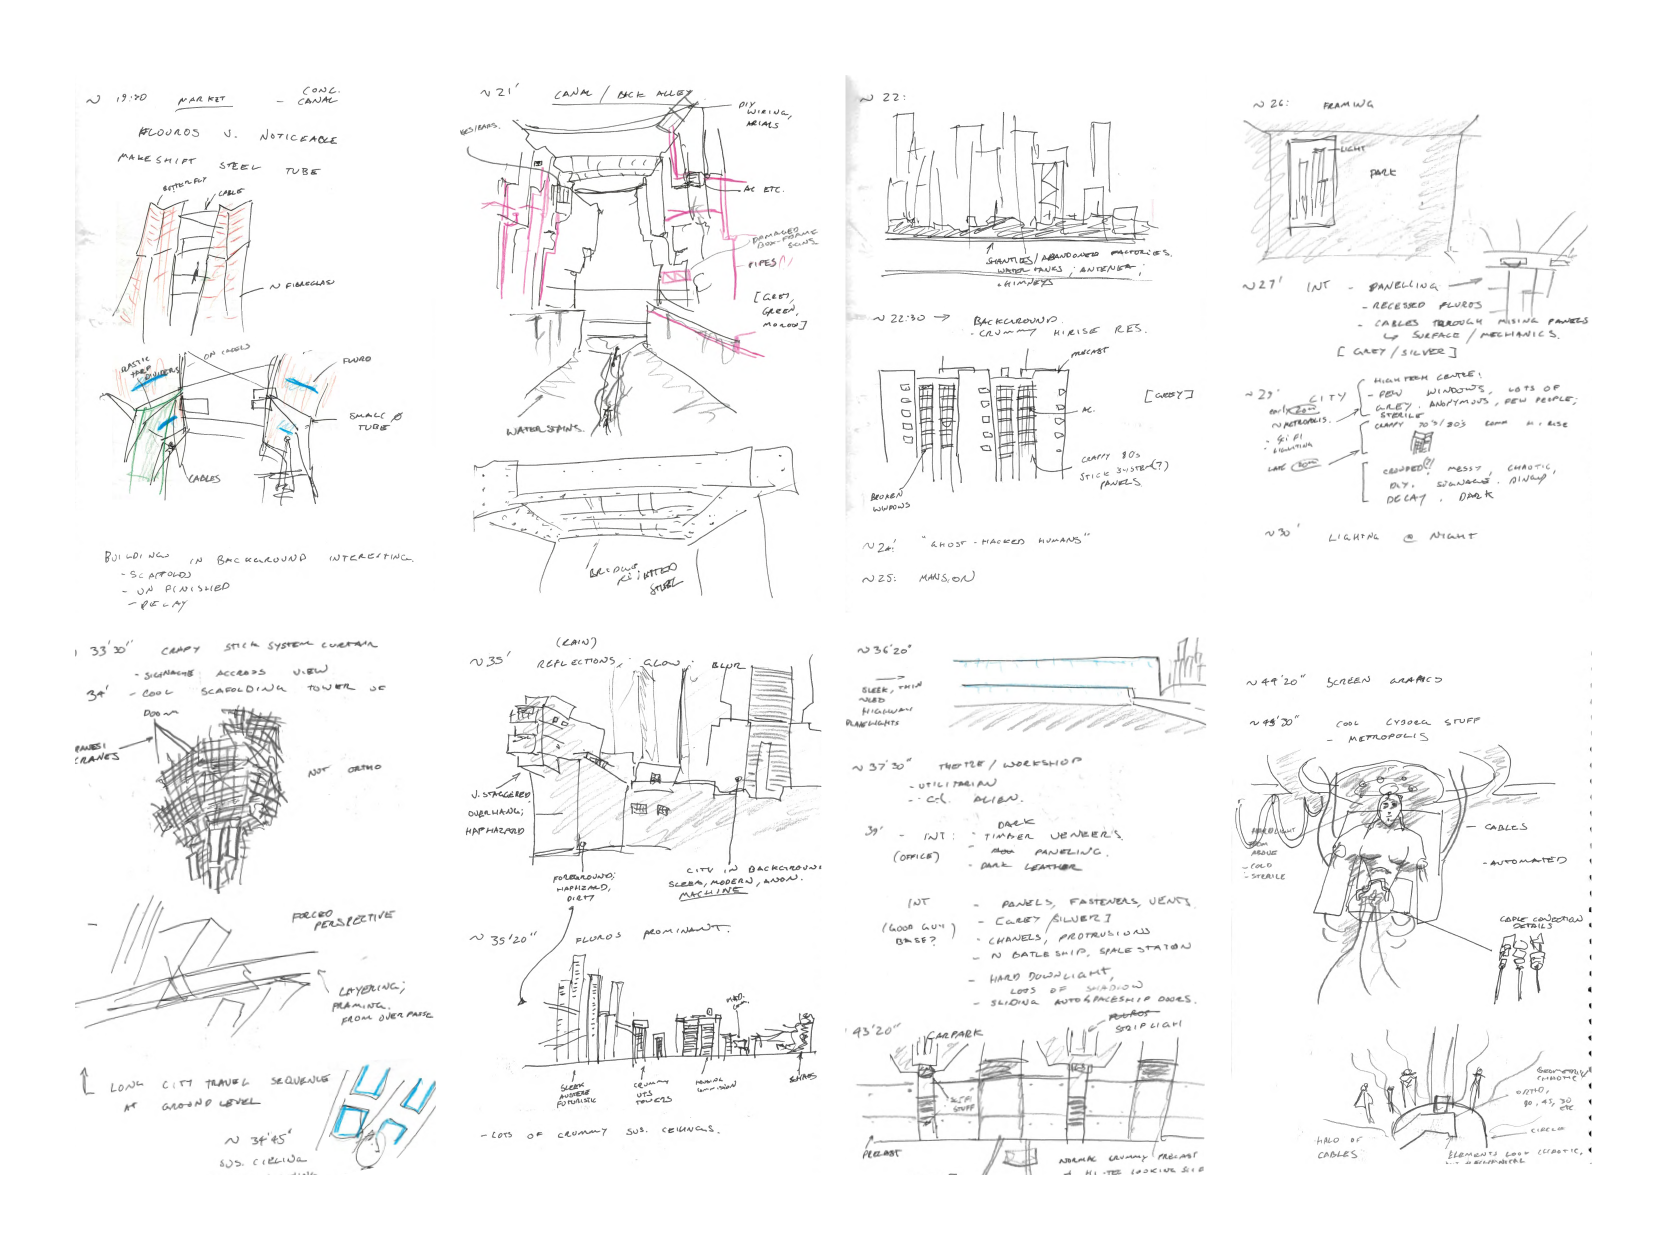 ~ 19:20 MARKET - CONC. CANAL
FLOUROS V. NOTICEABLE
MAKESHIFT STEEL TUBE
BUTTERFLY
CABLE
~ FIBREGLASS
PLASTIC TARP DIVIDERS
ON CABLES
FLURO
SMALL Ø TUBE
CABLES
BUILDINGS IN BACKGROUND INTERESTING.
- SCAFFOLD
- UNFINISHED
- DECAY
~ 21' CANAL / BACK ALLEY
DIY WIRING, ARIALS
AC ETC.
DAMAGED BOX-FRAME SIGNS
- PIPES
[GREY, GREEN, MOROON]
WATER STAINS.
BRIDGING RIVETTED STEEL
~ 22:
SHANTIES / ABANDONED FACTORIES.
WATER TANKS; ANTENEA;
CHIMNEYS
~ 22:30 → BACKGROUND.
- CRUMMY HIRISE RES.
PRECAST
[GREY]
AC.
CRAPPY 80s
STICK SYSTEM(?)
PANELS.
BROKEN WINDOWS
~ 24: "GHOST-HACKED HUMANS"
~ 25: MANSION
~ 26: FRAMING
LIGHT
DARK
~ 27' INT - PANELLING
- RECESSED FLUROS
- CABLES THROUGH MISSING PANELS
↳ SURFACE / MECHANICS.
[GREY/SILVER]
~ 29' CITY
HIGH TECH CENTRE:
- FEW WINDOWS, LOTS OF
GREY, ANONYMOUS, FEW PEOPLE,
STERILE
~ METROPOLIS.
- SCI FI LIGHTING
CRAPPY 70's/80's COMM HI RISE
LATE
CROWDED(?) MESSY, CHAOTIC,
DIY, SIGNAGE, DINGY
DECAY, DARK
~ 30' LIGHTING @ NIGHT
33'30" CRAPY STICK SYSTEM CURTAIN
- SIGNNAGE ACCROSS VIEW
34' - COOL SCAFOLDING TOWER OF
DOOM
CRANES
NOT ORTHO
FORCED PERSPECTIVE
LAYERING;
FRAMING.
FROM OVERPASS
LONG CITY TRAVEL SEQUENCE
AT GROUND LEVEL
~ 34'45"
SUS. CIRLING
(RAIN)
~ 35' REFLECTIONS; GLOW; BLUR
V. STAGGERED
OVERHANG;
HAPHAZARD
FOREGROUND;
HAPHIZARD,
DIRTY
CITY IN BACKGROUND
SLEEK, MODERN, ANON.
MACHINE
~ 35'20" FLUROS PROMINANT.
SLEEK AUSTERE FUTURISTIC
CRUMMY UTS TOWERS
SPIRES
- LOTS OF CRUMMY SUS. CEILINGS.
~ 36'20"
SLEEK, THIN
~ LED
HIGHWAY
~ 37'30" THEATRE / WORKSHOP
- UTILITARIAN
- c.f. ALIEN.
39' - INT: DARK TIMBER VENEERS.
(OFFICE) - PANELING.
- DARK LEATHER
INT - PANELS, FASTENERS, VENTS.
(GOOD GUY BASE?) - [GREY/SILVER]
- CHANELS, PROTRUSIONS
- ~ BATLESHIP, SPACE STATION
- HARD DOWNLIGHT,
LOTS OF SHADOW
- SLIDING AUTO SPACESHIP DOORS.
43'20" CARPARK
STRIP LIGH
SCIFI STUFF
PRECAST
NORMAL CRUMMY PRECAST
+ HI-TEC LOOKING
~ 44'20" SCREEN GRAPICS
~ 49'30" COOL CYBORG STUFF
- METROPOLIS
FROM ABOVE
- COLD
- STERILE
- CABLES
- AUTOMATED
CABLE CONECTION DETAILS
GEOMETRIC/ CHAOTIC
ORTHO,
90, 45, 30 ETC
CIRCLE
HALO OF CABLES
ELEMENTS LOOK CHAOTIC,